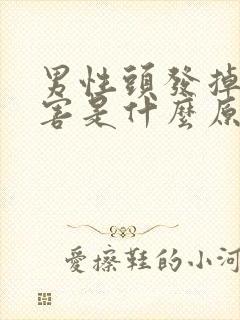 男性頭發掉
害是什麼原
愛擦鞋的小河